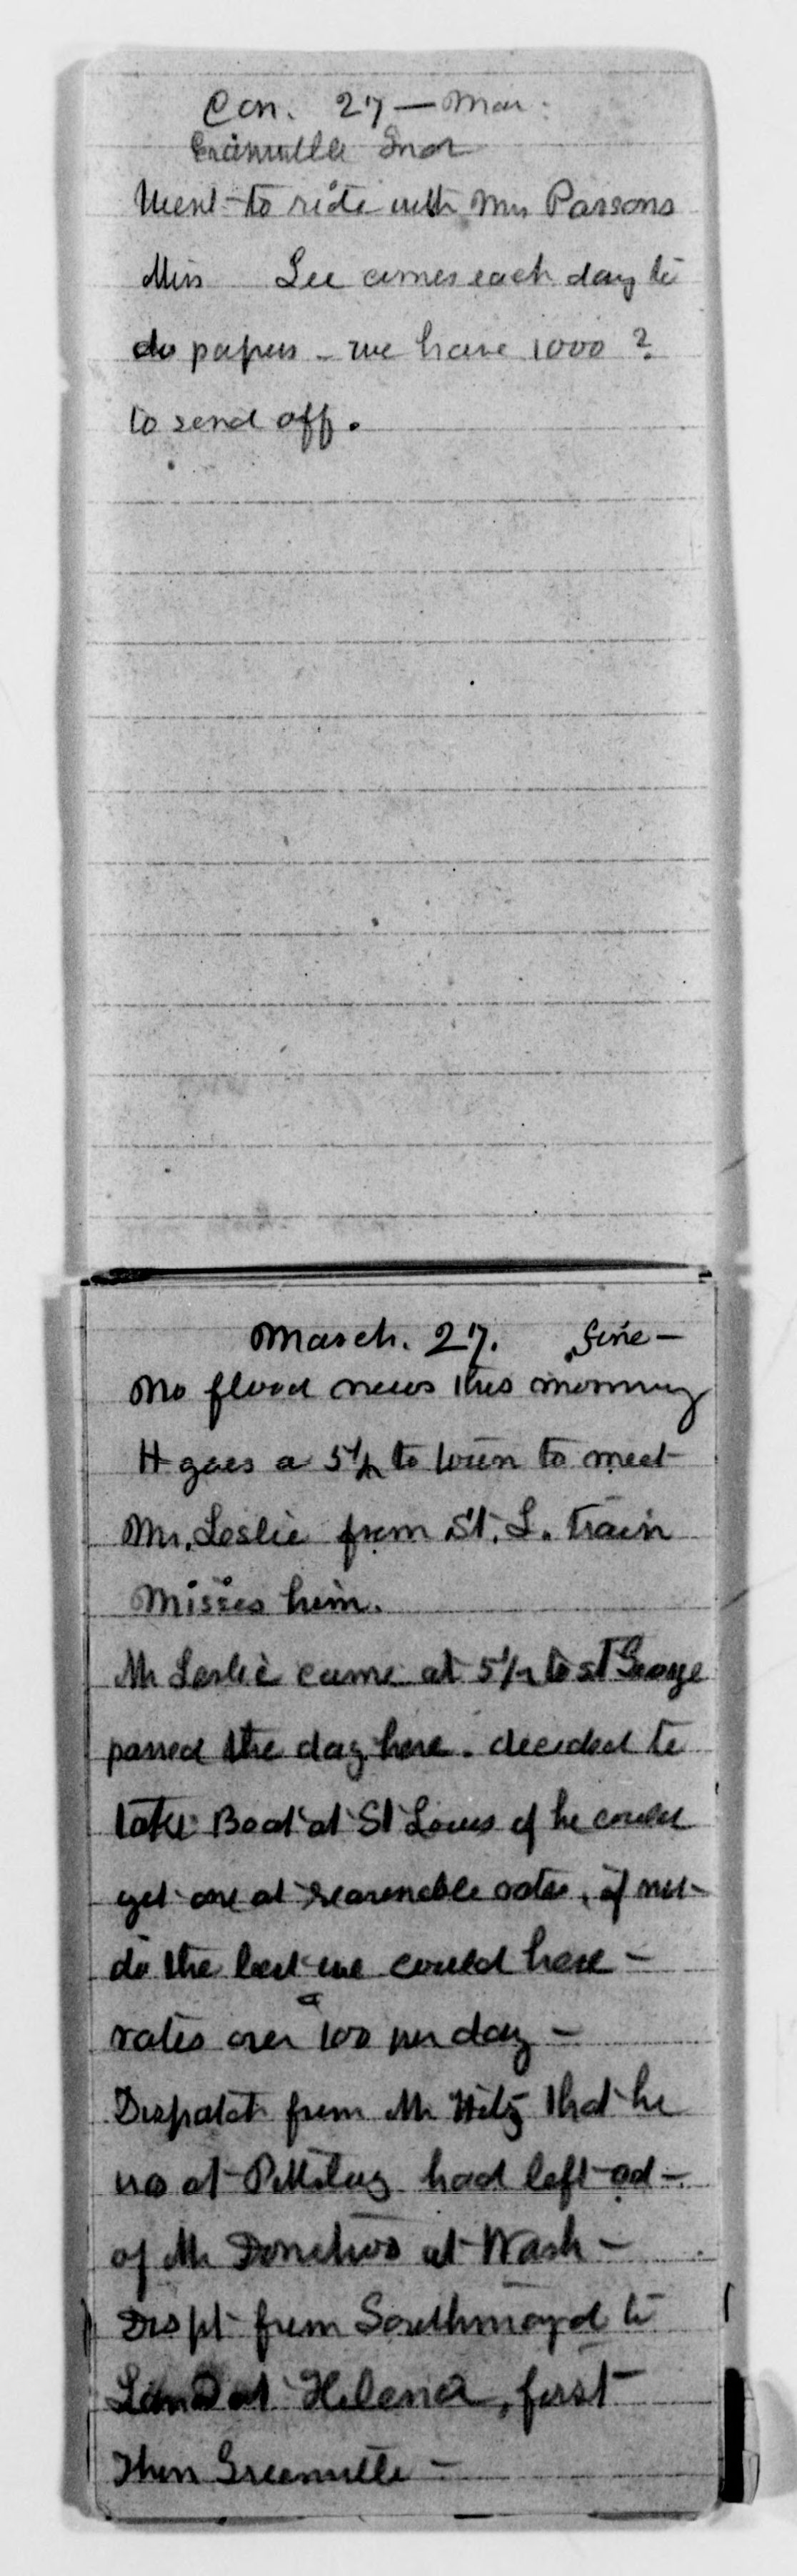 Con. 27 — Mar.
Evansville Ind
Went to ride with Mrs Parsons
Miss Lee comes each day to
do papers - we have 1000 ?
to send off.
March. 27. fine —
No flood news this morning
H goes a 5½ to town to meet
Mr. Leslie from St. L. train
Misses him.
Mr Leslie came at 5½ to St George
passed the day here. decided to
take Boat at St Louis if he could
get one at reasonable rates, if not
do the best we could here —
rates over 100 per day —
Dispatch from Mr Hitz that he
was at Pittsburg had left ad—
of Mr at Wash —
Dispt from Southmayd to
Land at Helena, first
Then Greenville —